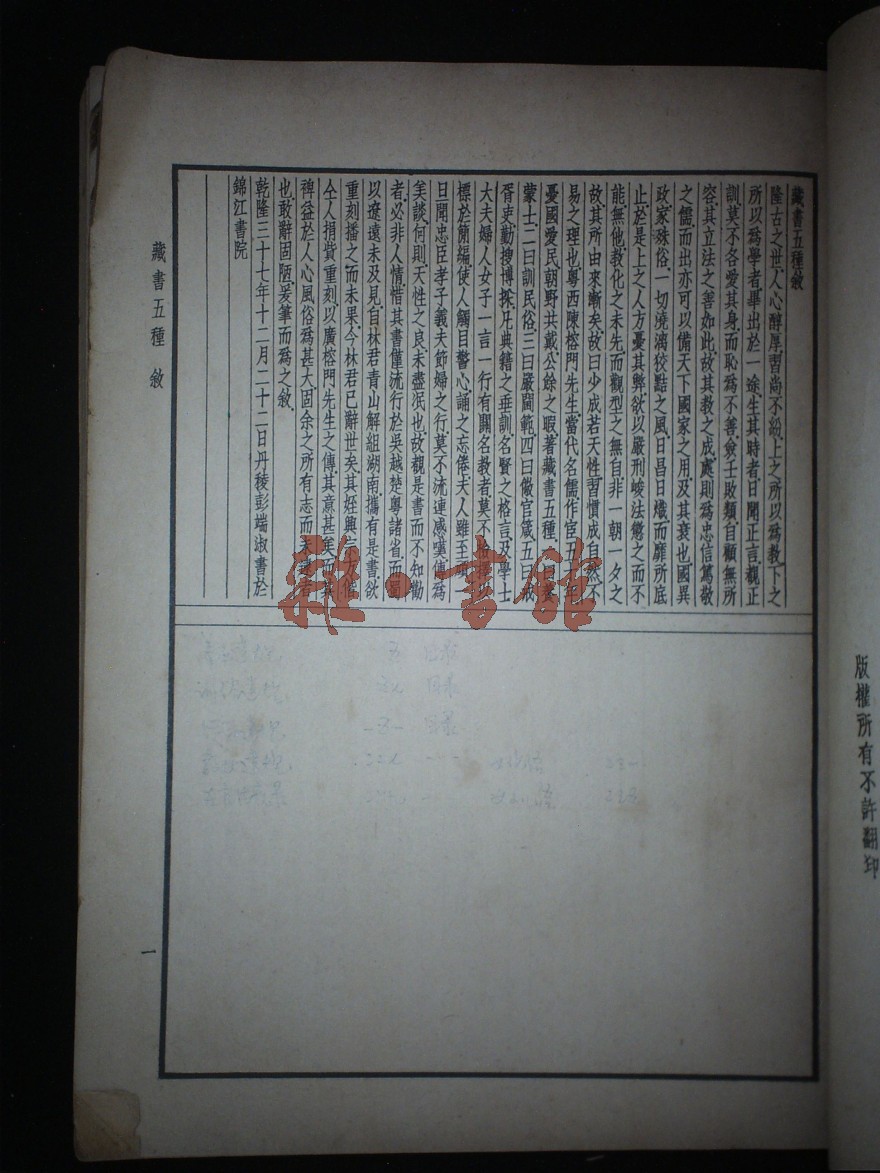 藏書五種敘
隆古之世人心醇厚習尚不紛上之所以爲教下之
所以爲學者畢出於一途生其時者日聞正言觀正
訓莫不各愛其身而恥爲不善僉壬敗類自顧無所
容其立法之善如此故其教之成處則爲忠信篤敬
之儒而出亦可以備天下國家之用及其衰也國異
政家殊俗一切澆漓狡黠之風日昌日熾而靡所底
止於是上之人方憂其弊欲以嚴刑峻法懲之而不
能無他教化之未先而觀型之無自非一朝一夕之
故其所由來漸矣故曰少成若天性習慣成自然不
易之理也粵西陳榕門先生當代名儒作宦五十年
憂國愛民朝野共戴公餘之暇著藏書五種一曰養
蒙士二曰訓民俗三曰嚴閫範四曰儆官箴五曰戒
胥吏勤搜博採凡典籍之垂訓名賢之格言及學士
大夫婦人女子一言一行有關名教者莫不
標於簡編使人觸目警心誦之忘倦夫人雖至頑一
日聞忠臣孝子義夫節婦之行莫不流連感嘆傳爲
美談何則天性之良未盡泯也故觀是書而不知勸
者必非人情惜其書僅流行於吳越楚粵諸省而蜀
以遼遠未及見自林君青山解組湖南攜有是書欲
重刻播之而未果今林君已辭世矣其姪興宗偕
仝人捐貲重刻以廣榕門先生之傳其意甚美而其
裨益於人心風俗爲甚大固余之所有志而未逮者
也敢辭固陋爰筆而爲之敘
乾隆三十七年十二月二十二日丹稜彭端淑書於
錦江書院
藏書五種 敘
一
版權所有不許翻印
雜·書館